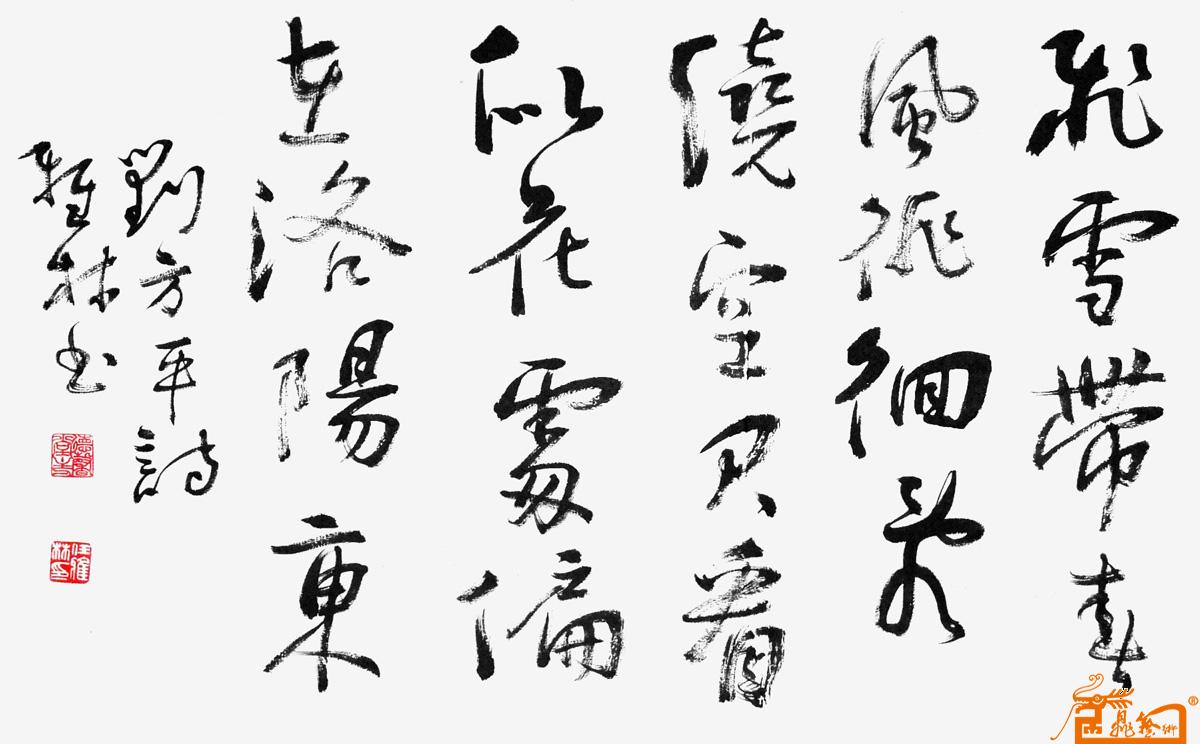 飛雪帶春
風徘徊亂
繞空君看
似花處偏
在洛陽東
劉方平詩
雅林书
任雅林印